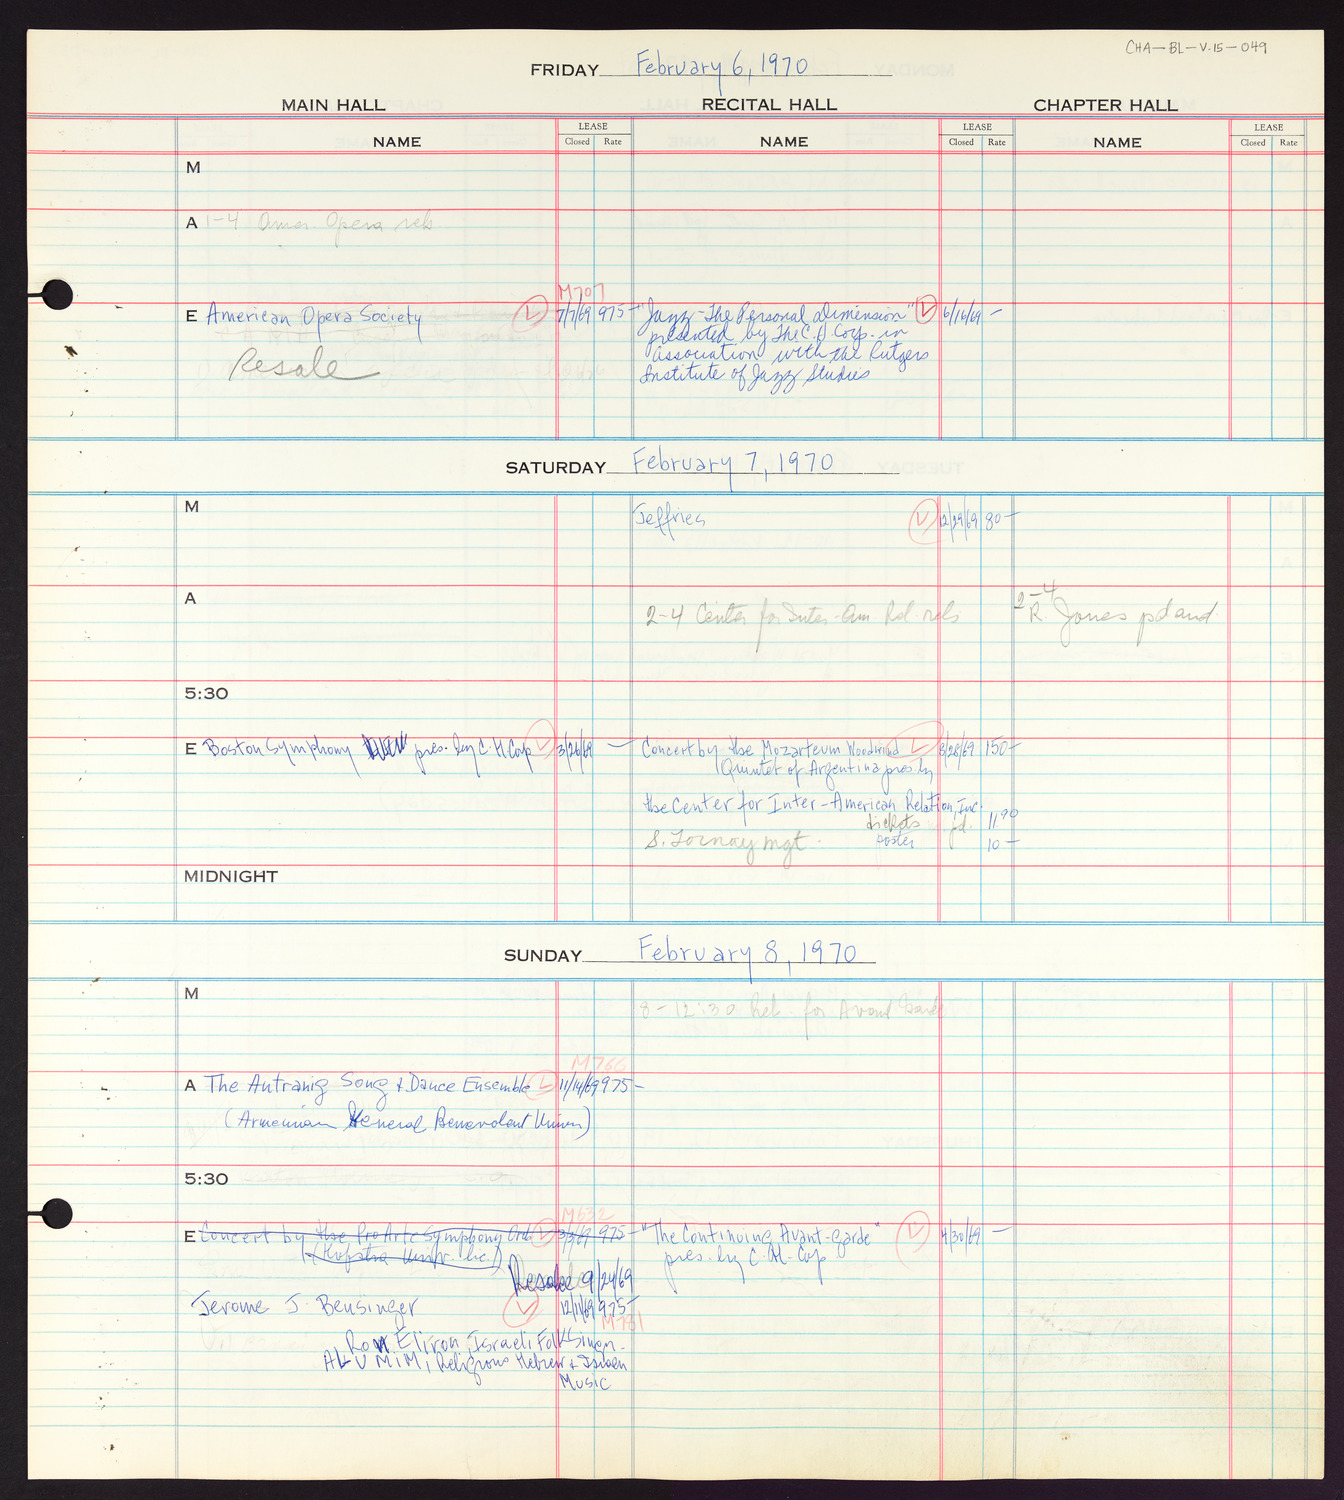 CHA-BL-V.15-049
FRIDAY February 6, 1970
MAIN HALL RECITAL HALL CHAPTER HALL
NAME LEASE Closed Rate NAME LEASE Closed Rate NAME LEASE Closed Rate
M
A 1-4 Amer. Opera reh
M707
E American Opera Society 7/7/69 975- "Jazz-The Personal Dimension" 6/16/69 -
presented by The C.H. Corp. in
Resale
association with the Rutgers
Institute of Jazz Studies
SATURDAY February 7, 1970
M Jeffries 12/29/69 80-
A 2-4 Center for Inter-Am Rel. reh 2-4 R. Jones pd and
5:30
E Boston Symphony pres. by C.H. Corp 3/26/69 - Concert by the Mozarteum Woodwind 8/28/69 150-
Quintet of Argentina pres. by
the Center for Inter-American Relation, Inc.
tickets pd. 11.90
S. Tornay mgt. poster 10-
MIDNIGHT
SUNDAY February 8, 1970
M 8-12:30 Reh. for Avant Garde
M766
A The Antranig Song & Dance Ensemble 11/14/69 975-
(Armenian General Benevolent Union)
5:30
M632
E Concert by the Pro Arte Symphony Orch 3/3/69 975- "The Continuing Avant-garde" 4/30/69 -
(Hofstra Univ. Inc.) pres. by C.H. Corp
Resale 9/24/69
Jerome J. Bensinger 12/11/69 975-
M781
Ron Eliron, Israeli Folk Singer-
ALUMIM, Religious Hebrew &
Music